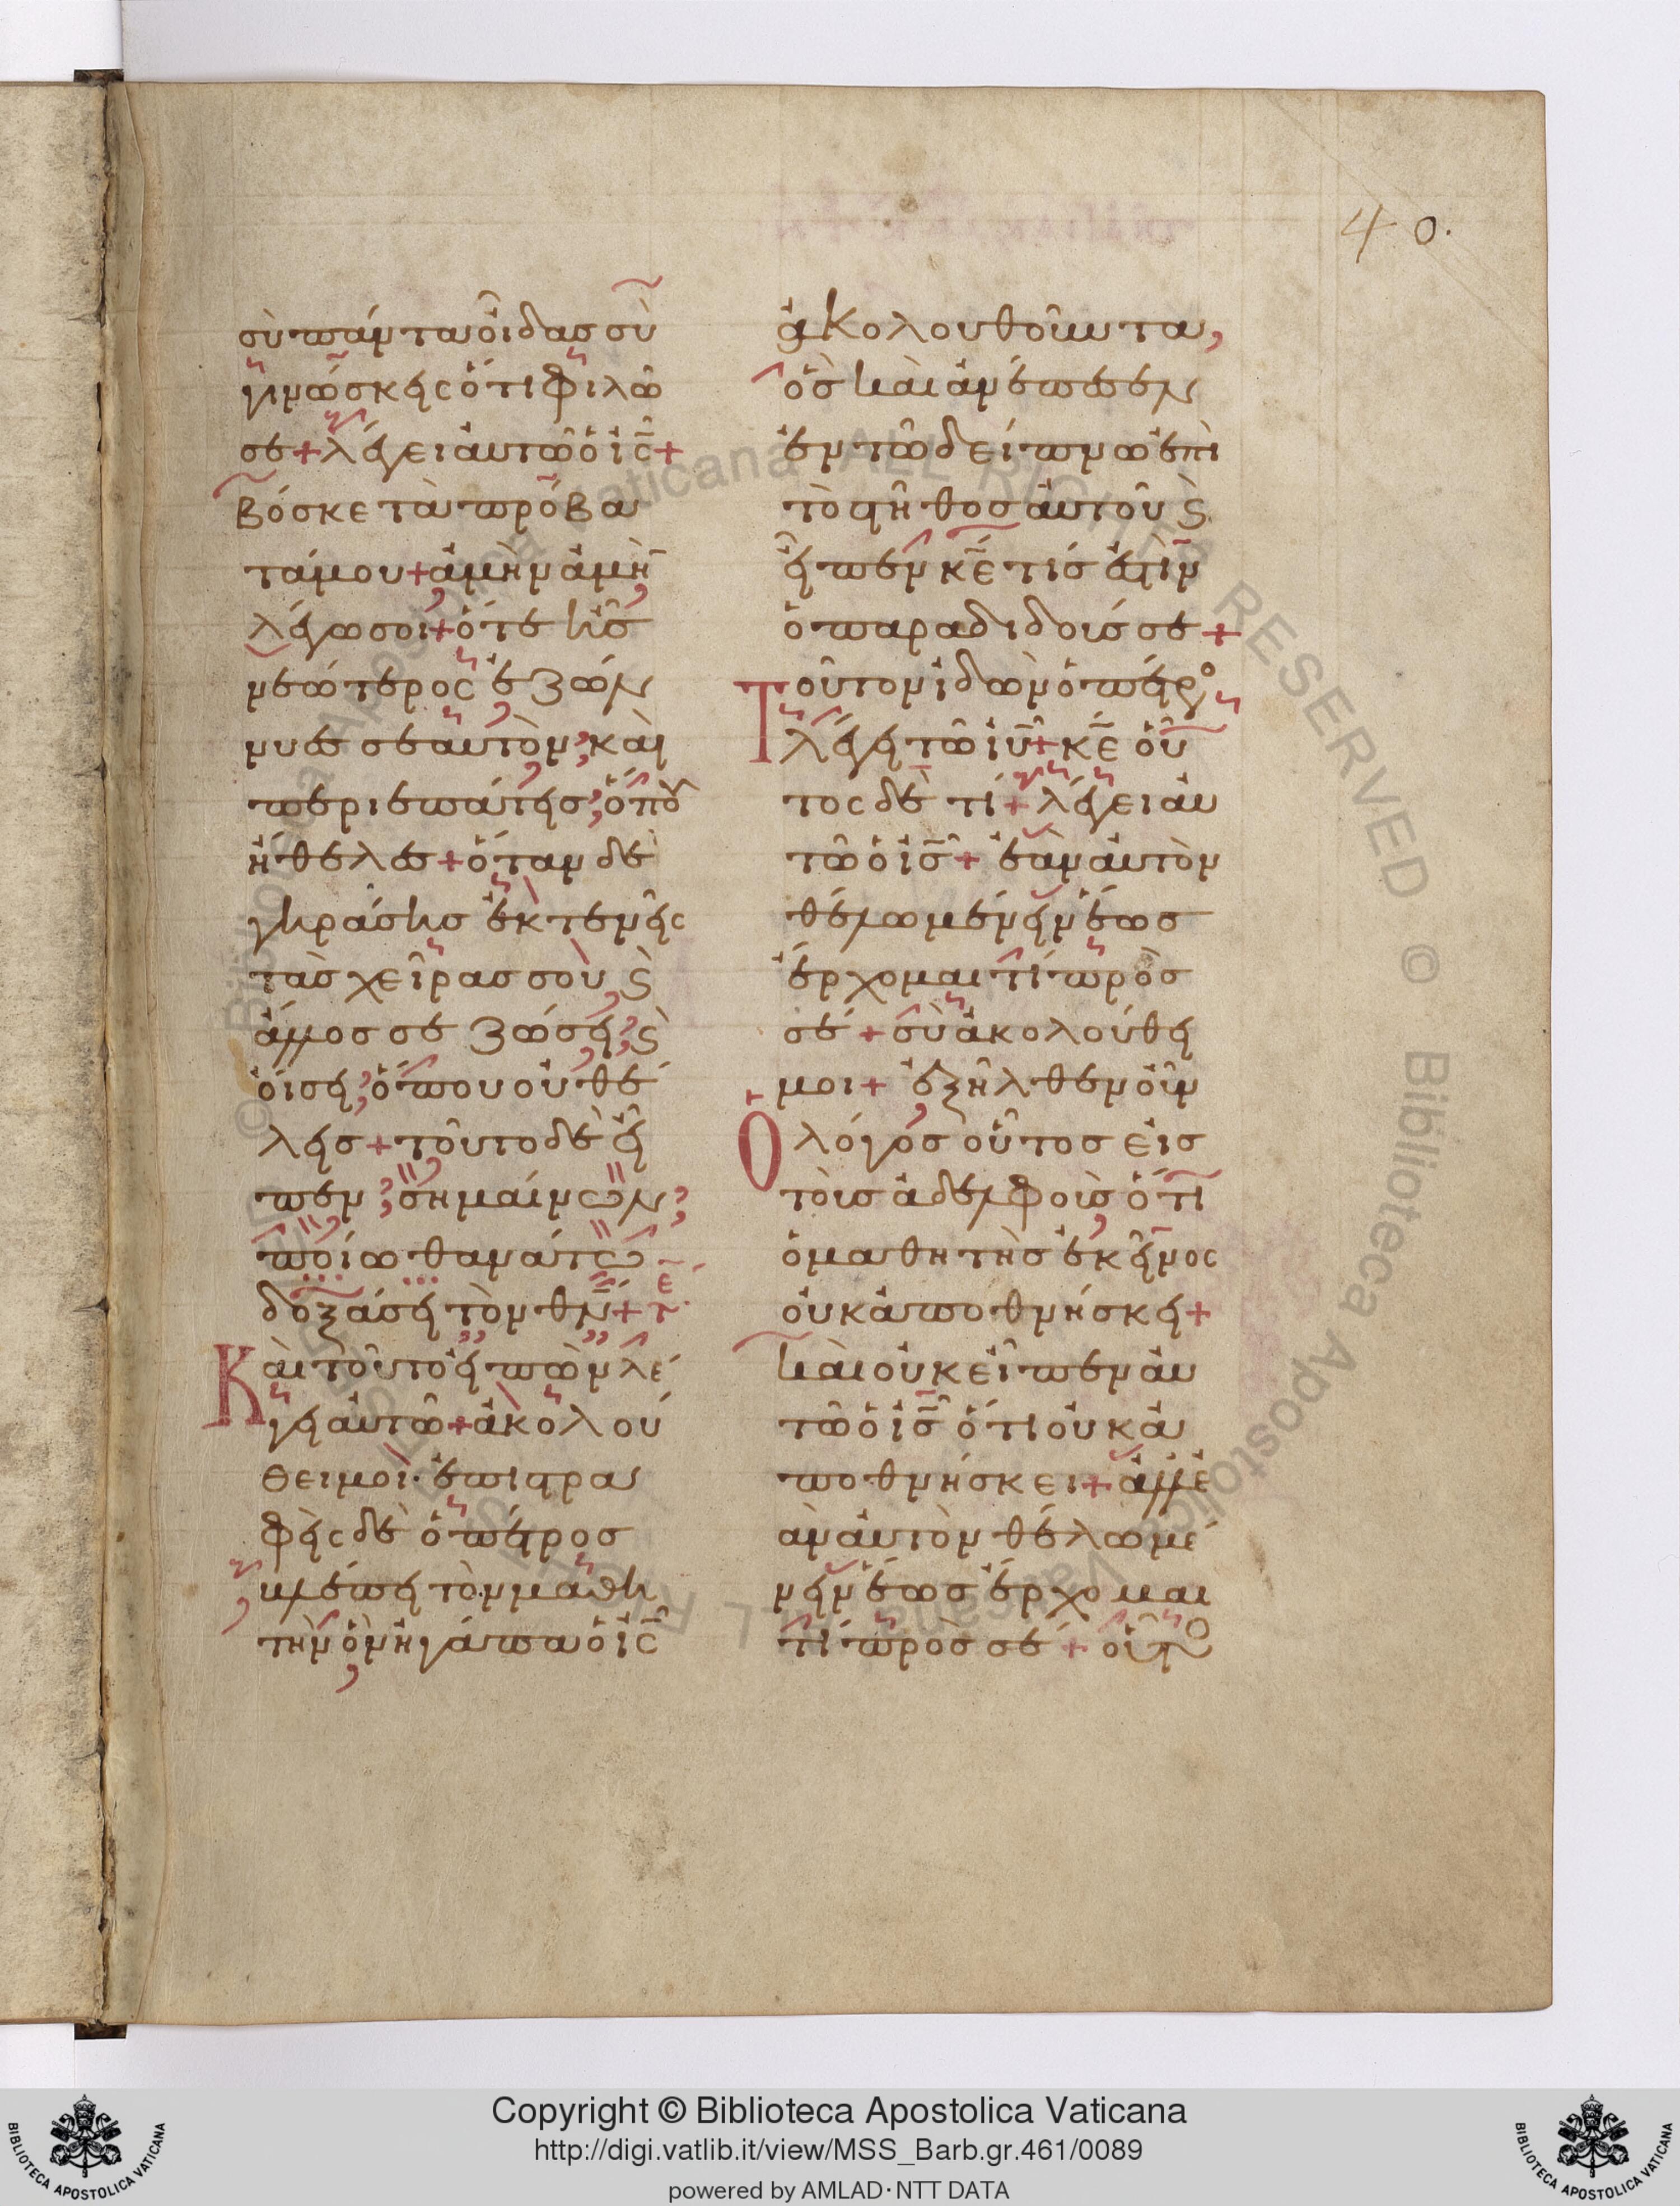 40.
σὺ πάντα οἶδας σὺ
γινώσκεις ὅτι φιλῶ
σε + λέγει αὐτῶ ὁ ις +
Βόσκε τὰ πρόβα
τά μου + ἀμὴν ἀμὴ
λέγω σοι + ὅτε ἦς
νεώτερος ἐζών
νυες σεαυτὸν, καὶ
περιεπάτεις, ὅπου
ἤθελες + ὅταν δὲ
γηράσης ἐκτενεῖς
τὰς χεῖρας σου, ϛ
ἄλλος σε ζώσει, ϛ
οἴσει, ὅπου οὐ θέ
λεις + τοῦτο δὲ εἶ
πεν, σημαίνων,
ποίω θανάτω
δοξάσει τὸν θν +
Καὶ τοῦτο εἰπὼν λέ
γει αὐτῶ + ἀκολού
θει μοι. ἐπιστρα
φεὶς δὲ ὁ πέτρος
βλέπει τὸν μαθη
τὴν ὃν ἠγάπα ὁ ις
ἀκολουθοῦντα,
ὃς καὶ ἀνέπεσεν
ἐν τῶ δείπνω ἐπὶ
τὸ στῆθος αὐτοῦ ϛ
εἶπεν κε τίς ἐστιν
ὁ παραδιδούς σε +
Τοῦτον ἰδὼν ὁ πέτρο
λέγει τῶ ιυ + κε οὗ
τος δὲ τί + λέγει αὐ
τῶ ὁ ις + ἐὰν αὐτὸν
θέλω μένειν ἕως
ἔρχομαι τί πρὸς
σέ + σὺ ἀκολούθει
μοι + ἐξῆλθεν οὖν
Ὁ λόγος οὗτος εἰς
τοὺς ἀδελφοὺς ὅτι
ὁ μαθητὴς ἐκεῖνος
οὐκ ἀποθνήσκει +
καὶ οὐκ εἶπεν αὐ
τῶ ὁ ις ὅτι οὐκ ἀ
ποθνήσκει + ἀλλ ἐ
ὰν αὐτὸν θέλω μέ
νειν ἕως ἔρχομαι
τί πρὸς σέ + οὗτο
Copyright © Biblioteca Apostolica Vaticana
http://digi.vatlib.it/view/MSS_Barb.gr.461/0089
powered by AMLAD·NTT DATA